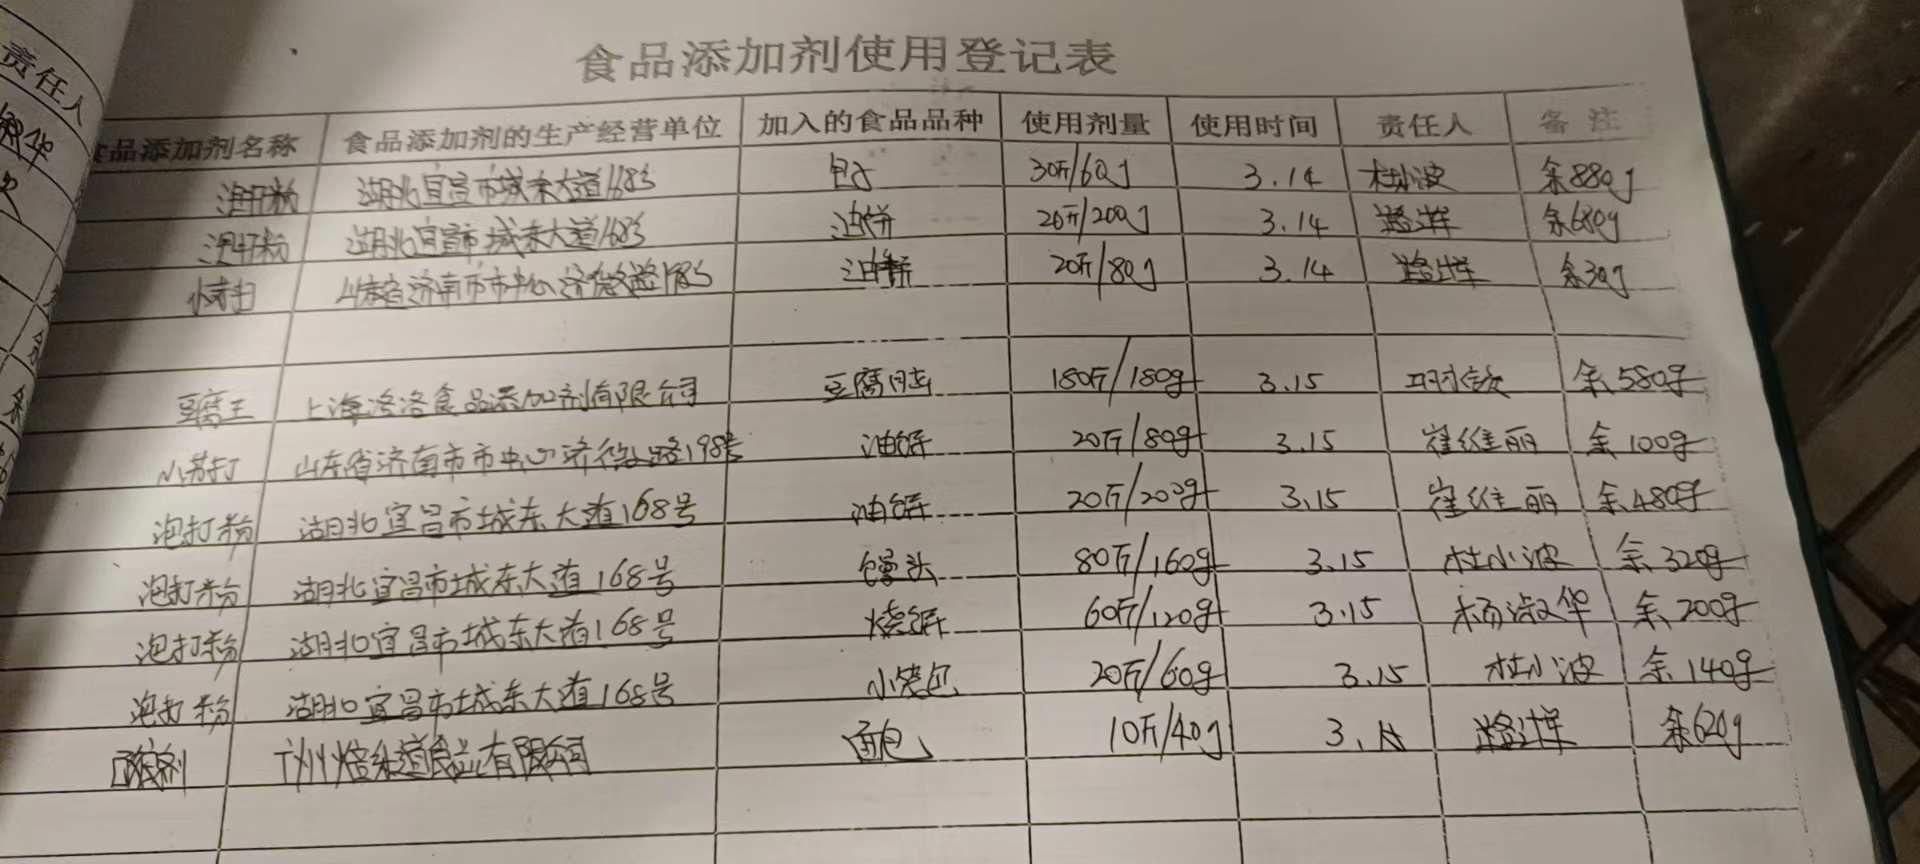 责任人
食品添加剂使用登记表
食品添加剂名称 食品添加剂的生产经营单位 加入的食品品种 使用剂量 使用时间 责任人 备注
泡打粉 湖北宜昌市城东大道168号 包子 30斤/60g 3.14 杜小波 余880g
泡打粉 湖北宜昌市城东大道168号 油饼 20斤/200g 3.14 余680g
小苏打 山东省济南市市中心济微路198号 油饼 20斤/80g 3.14 余30g
豆腐王 上海洛洛食品添加剂有限公司 豆腐脑 180斤/180g 3.15 余580g
小苏打 山东省济南市市中心济微路198号 油饼 20斤/80g 3.15 崔维丽 余100g
泡打粉 湖北宜昌市城东大道168号 油饼 20斤/200g 3.15 崔维丽 余480g
泡打粉 湖北宜昌市城东大道168号 馒头 80斤/160g 3.15 杜小波 余320g
泡打粉 湖北宜昌市城东大道168号 烧饼 60斤/120g 3.15 杨淑华 余200g
泡打粉 湖北宜昌市城东大道168号 小笼包 20斤/60g 3.15 杜小波 余140g
广州焙乐道食品有限公司 面包 10斤/40g 3.15 余620g